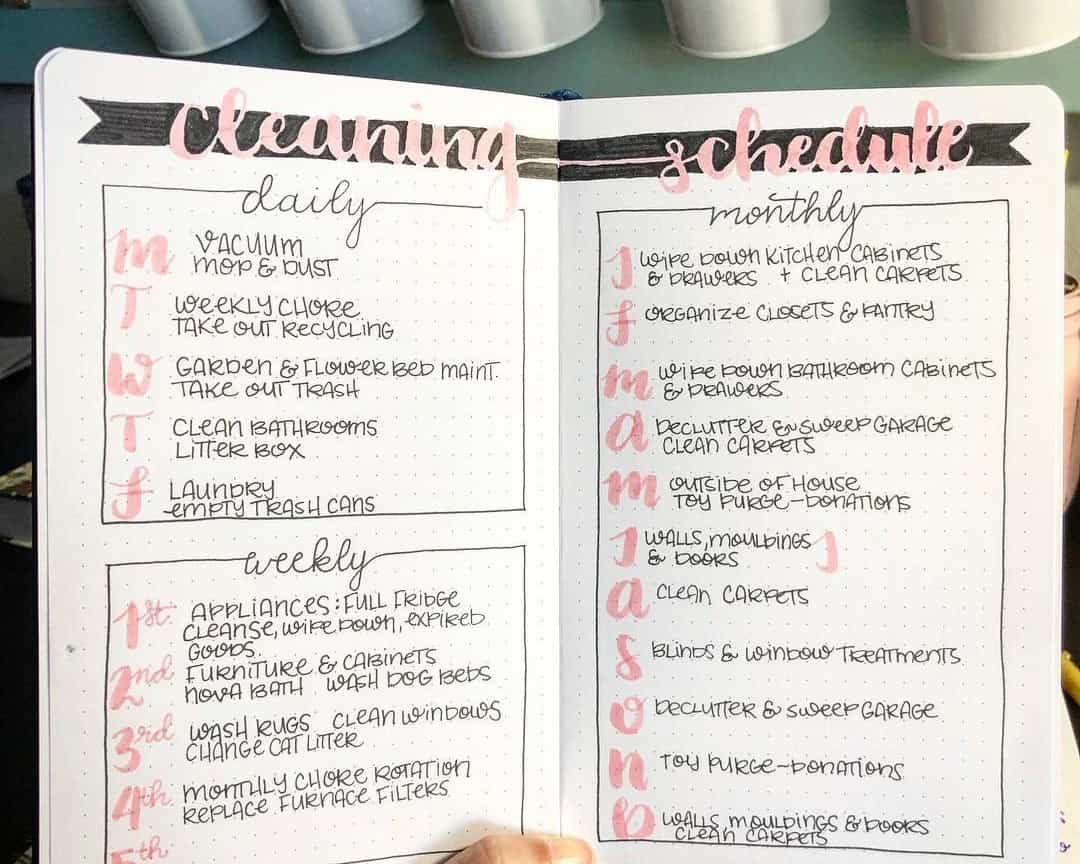 cleaning schedule
daily
M VACUUM
MOP & DUST
T WEEKLY CHORE
TAKE OUT RECYCLING
W GARDEN & FLOWER BED MAINT.
TAKE OUT TRASH
T CLEAN BATHROOMS
LITTER BOX
f LAUNDRY
EMPTY TRASH CANS
weekly
1st APPLIANCES: FULL FRIDGE
CLEANSE, WIPE DOWN, EXPIRED
GOODS.
2nd FURNITURE & CABINETS
NOVA BATH WASH DOG BEDS
3rd WASH RUGS CLEAN WINDOWS
CHANGE CAT LITTER
4th MONTHLY CHORE ROTATION
REPLACE FURNACE FILTERS
5th
monthly
J WIPE DOWN KITCHEN CABINETS
& DRAWERS + CLEAN CARPETS
f ORGANIZE CLOSETS & PANTRY
m WIPE DOWN BATHROOM CABINETS
& DRAWERS
a DECLUTTER & SWEEP GARAGE
CLEAN CARPETS
m OUTSIDE OF HOUSE
TOY PURGE-DONATIONS
J WALLS, MOULDINGS J
& DOORS
a CLEAN CARPETS
S BLINDS & WINDOW TREATMENTS
O DECLUTTER & SWEEP GARAGE
n TOY PURGE-DONATIONS
D WALLS, MOULDINGS & DOORS
CLEAN CARPETS